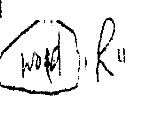 word, R"